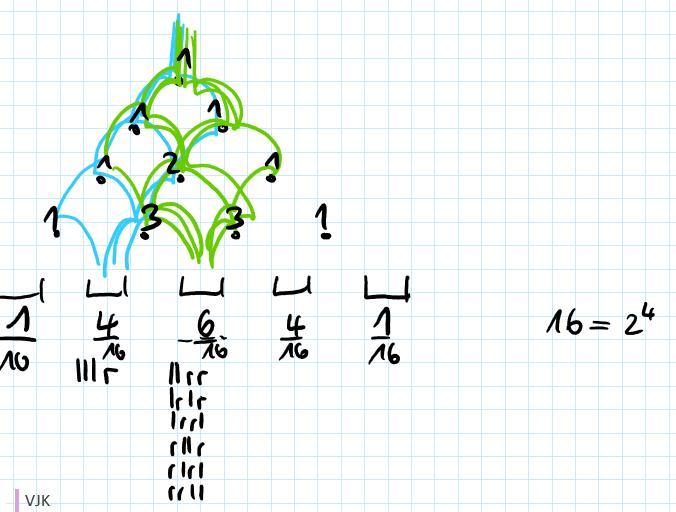 1
1 1
1 2 1
1 3 3 1
1/10 4/16 6/16 4/16 1/16 16 = 2⁴
lllr llrr
lrlr
lrrl
rllr
rlrl
rrll
VJK